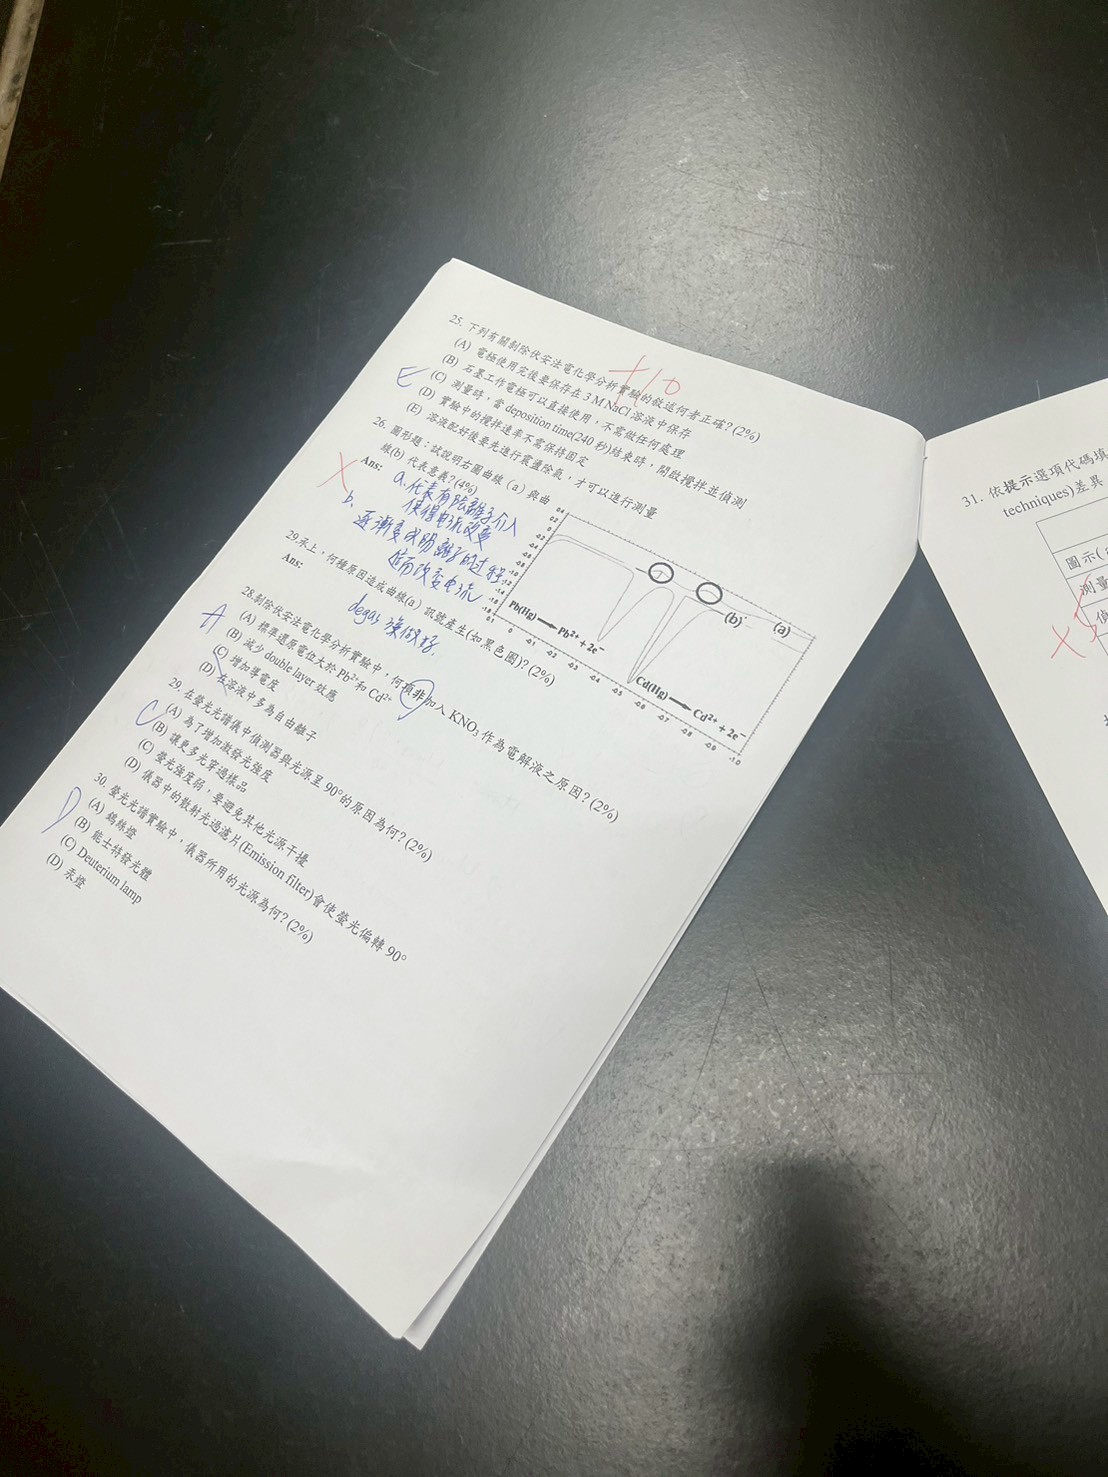 25. 下列有關剝除伏安法電化學分析實驗的敘述何者正確? (2%)
(A) 電極使用完後要保存在 3 M NaCl 溶液中保存
(B) 石墨工作電極可以直接使用，不需做任何處理
(C) 測量時，當 deposition time(240 秒)結束時，開啟攪拌並偵測
(D) 實驗中的攪拌速率不需保持固定
(E) 溶液配好後要先進行震盪除氣，才可以進行測量
E
26. 圖形題：試說明右圖曲線（a）與曲
線(b) 代表意義? (4%)
Ans:
a. 代表有陰離子介入
使得電流改變
b. 逐漸變成陽離子的过程
進而改變电流
0.4
0.2
0
-0.2
-0.4
-0.6
-0.8
-1.0
-1.2
-1.4
-1.6
-1.8
0.1 0 -0.1 -0.2 -0.3 -0.4 -0.5 -0.6 -0.7 -0.8 -0.9 -1.0
Pb(Hg) → Pb²⁺ + 2e⁻
Cd(Hg) → Cd²⁺ + 2e⁻
(b)
(a)
29.承上，何種原因造成曲線(a) 訊號產生(如黑色圈)? (2%)
Ans:
degas 沒做好.
28.剝除伏安法電化學分析實驗中，何項非加入 KNO₃ 作為電解液之原因? (2%)
A
(A) 標準還原電位大於 Pb²⁺和 Cd²⁺
(B) 減少 double layer 效應
(C) 增加導電度
(D) 在溶液中多為自由離子
29. 在螢光光譜儀中偵測器與光源呈 90°的原因為何? (2%)
C
(A) 為了增加散發光強度
(B) 讓更多光穿過樣品
(C) 螢光強度弱，要避免其他光源干擾
(D) 儀器中的散射光過濾片(Emission filter)會使螢光偏轉 90°
30. 螢光光譜實驗中，儀器所用的光源為何? (2%)
D
(A) 鎢絲燈
(B) 能士特發光體
(C) Deuterium lamp
(D) 汞燈
+10
31. 依提示選項代碼填
techniques)差異
圖示(
測量